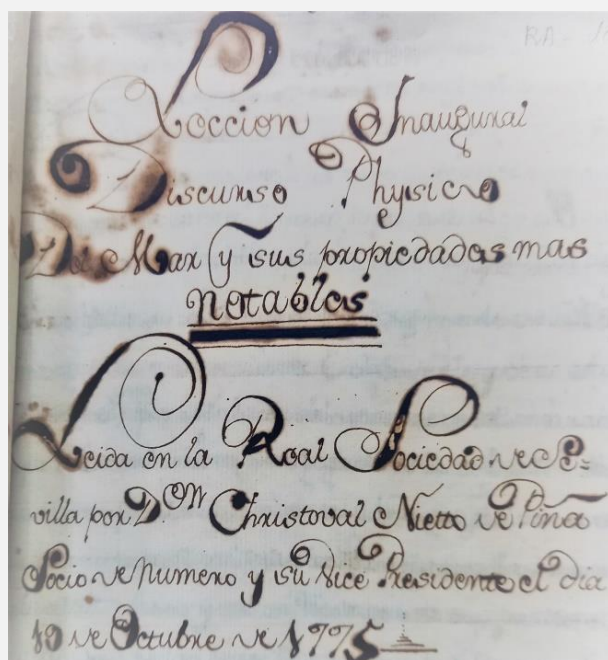 RA-
Leccion Inaugural
Discurso Physico
De Mar y sus propiedades mas
notables
Leida en la Real Sociedad de Se-
villa por D.ON Christoval Nietto de Piña
Socio de numero y su Vice Presidente el dia
19 de Octubre de 1775